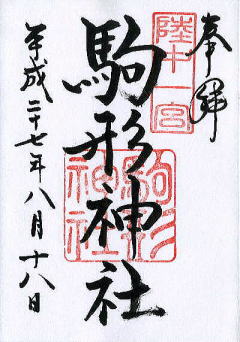 奉拝
陸中一宮
駒形神社
駒形神社
平成二十七年八月十八日